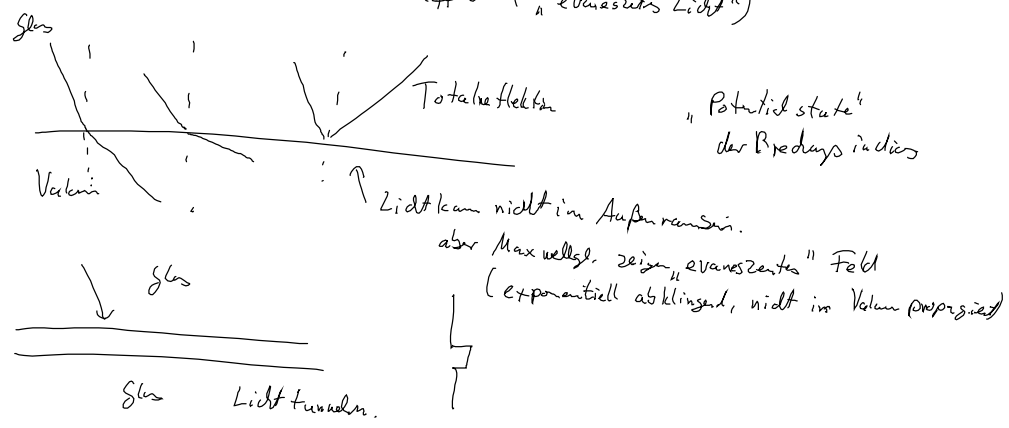 „evaneszentes Licht")
Glas
Totalreflektion
„Potentialstufe"
der Brechungsindizes
Vakuum
Licht kann nicht im Außenraum sein.
aber Maxwellgl. zeigen „evaneszentes" Feld
(exponentiell abklingend, nicht im Vakuum propagiert)
Glas
Glas
Licht tunneln.